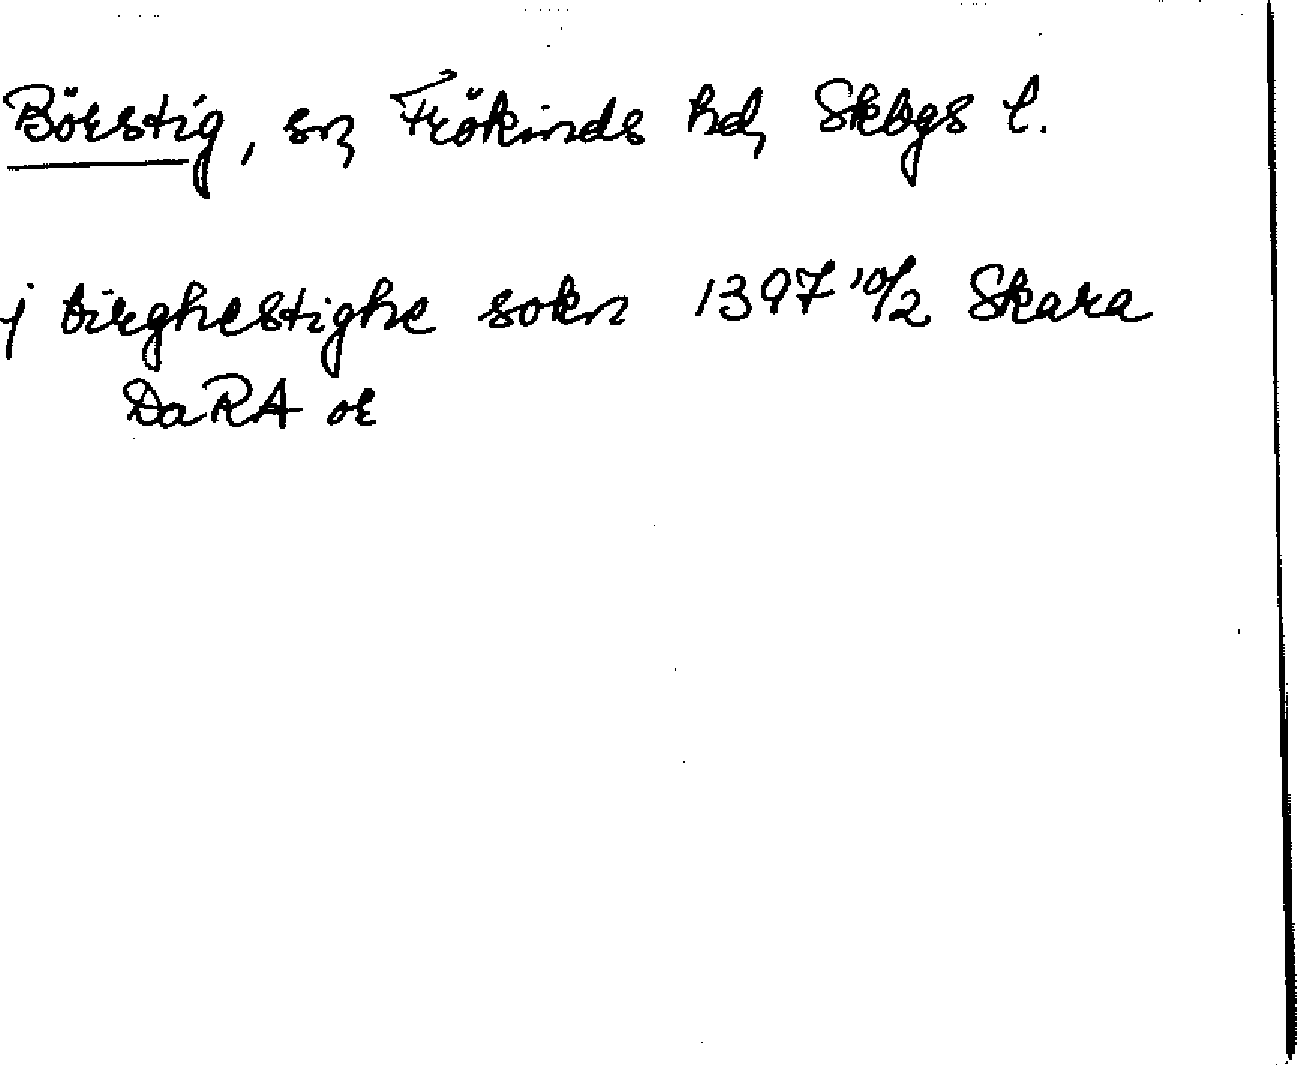 Börstig, sn, Frökinds hd, Skbgs l.
j birghestighe sokn 1397 10/2 Skara
DaRA or